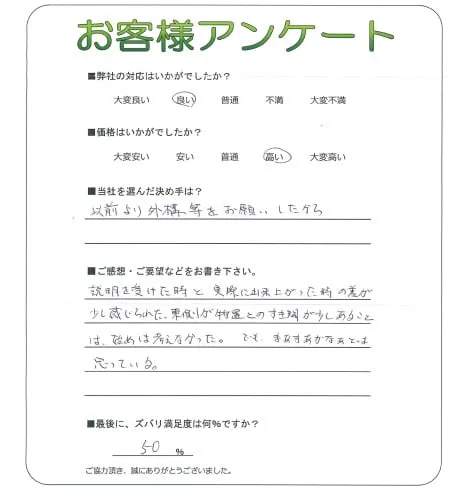 お客様アンケート
■弊社の対応はいかがでしたか?
大変良い 良い 普通 不満 大変不満
■価格はいかがでしたか?
大変安い 安い 普通 高い 大変高い
■当社を選んだ決め手は?
以前より外構等をお願いしたから
■ご感想・ご要望などをお書き下さい。
説明を受けた時と実際に出来上がった時の差が
少し感じられた。東側が物置とのすき間が少しあること
は、始めは考えなかった。でも、まあまあかなぁとは
思っている。
■最後に、ズバリ満足度は何%ですか?
50 %
ご協力頂き、誠にありがとうございました。